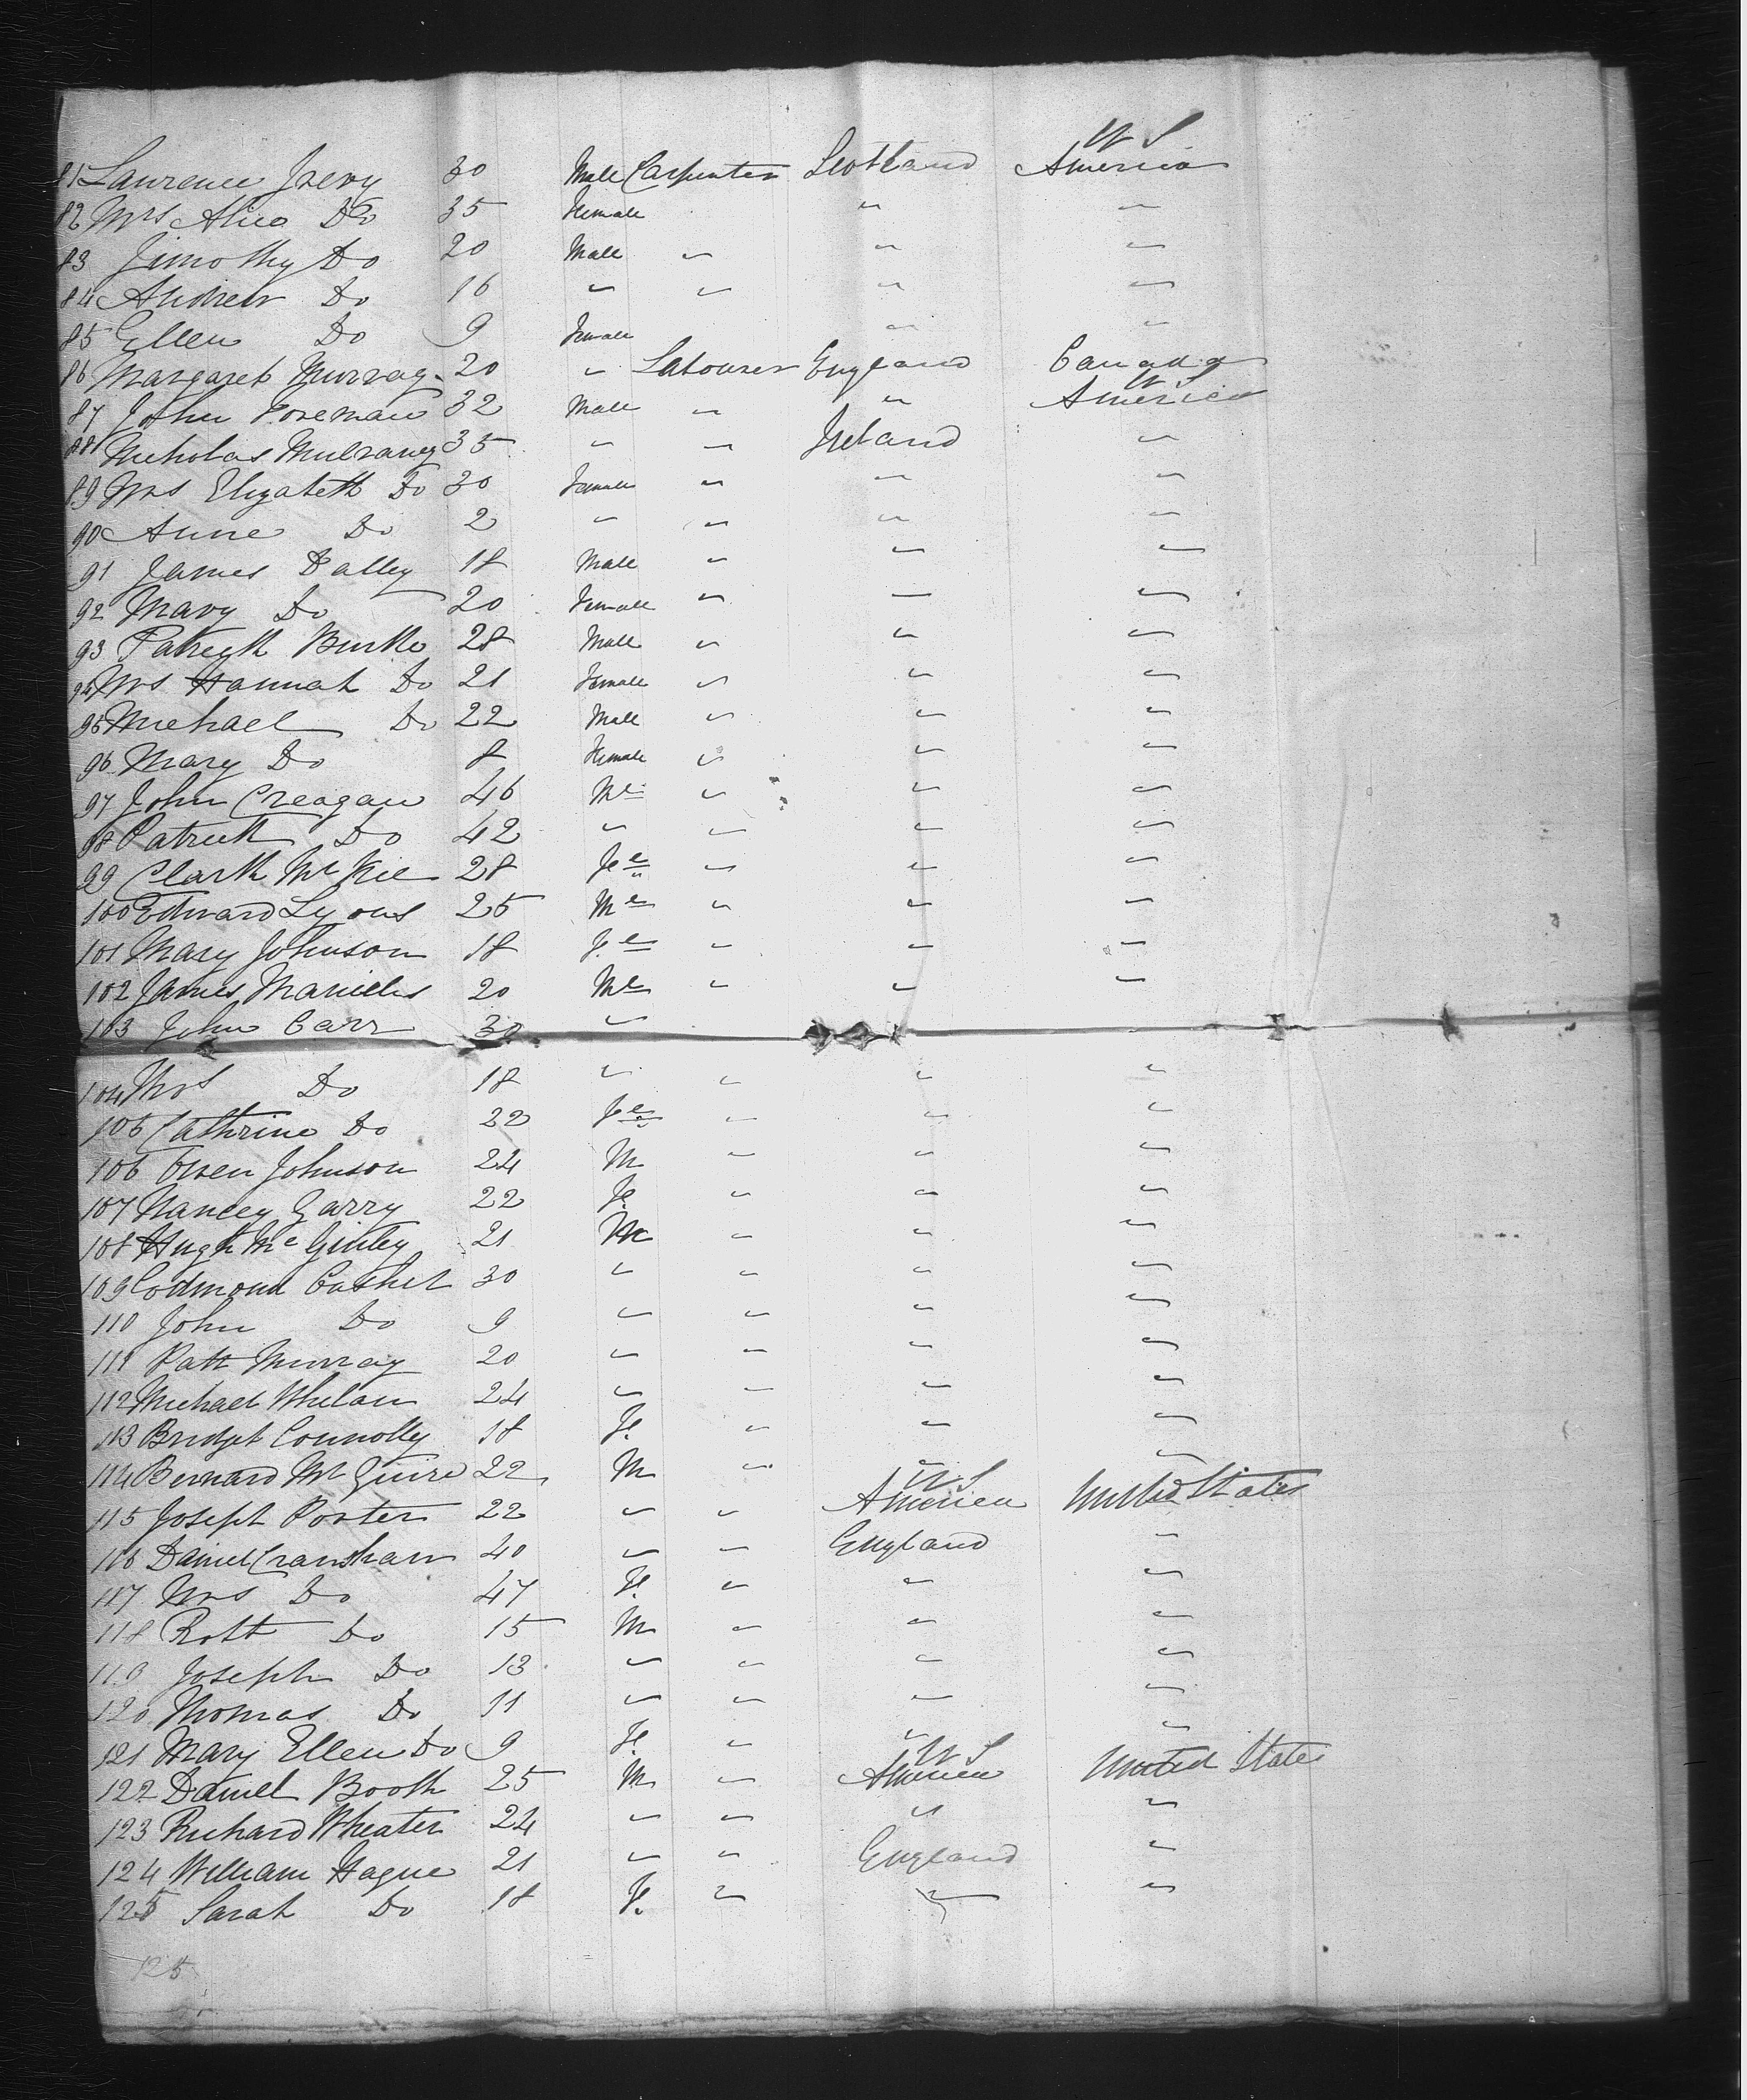 U S
81 Lawrence Jrevy 30 Male Carpenter Scotland America
82 Mrs Alice Do 35 Female " "
83 Timothy Do 20 Male " " "
84 Andrew Do 16 " " " "
85 Ellen Do 9 Female " "
86 Margaret Murray 20 " Labourer England Canada
U S
87 John Foreman 32 Male " " America
88 Nicholas Mulraney 35 " " Ireland "
89 Mrs Elizabeth Do 30 Female " " "
90 Anne Do 2 " " " "
91 James Dalley 18 Male " " "
92 Mary Do 20 Female " " "
93 Patrick Burke 28 Male " " "
94 Mrs Hannah Do 21 Female " " "
95 Michael Do 22 Male " " "
96 Mary Do 8 Female " " "
97 John Creagan 46 Me " " "
98 Patrick Do 42 " " " "
99 Clark McKie 28 Fe " " "
100 Edward Lyons 25 Me " " "
101 Mary Johnson 18 Fe " " "
102 James Manielis 20 Me " " "
103 John Carr 30 "
104 Mrs Do 18 " " " "
105 Cathrine Do 22 Fe " " "
106 Owen Johnson 24 M " " "
107 Nancey Garry 22 F. " " "
108 Hugh Mc Ginley 21 M " " "
109 Edmond Cashel 30 " " " "
110 John Do 9 " " " "
111 Patt Murray 20 " " " "
112 Michael Whelan 24 " " " "
113 Bridget Connolly 18 F. " " "
114 Bernard McGuire 22 M " " "
U S
115 Joseph Porter 22 " " America United States
116 Daniel Cranshaw 40 " " England "
117 Mrs Do 47 F. " " "
118 Robt Do 15 M " " "
119 Joseph Do 13 " " " "
120 Thomas Do 11 " " " "
121 Mary Ellen Do 9 F. " " "
U S
122 Daniel Booth 25 M " America United States
123 Richard Wheater 24 " " " "
124 William Hague 21 " " England "
125 Sarah Do 18 F. " " "
125